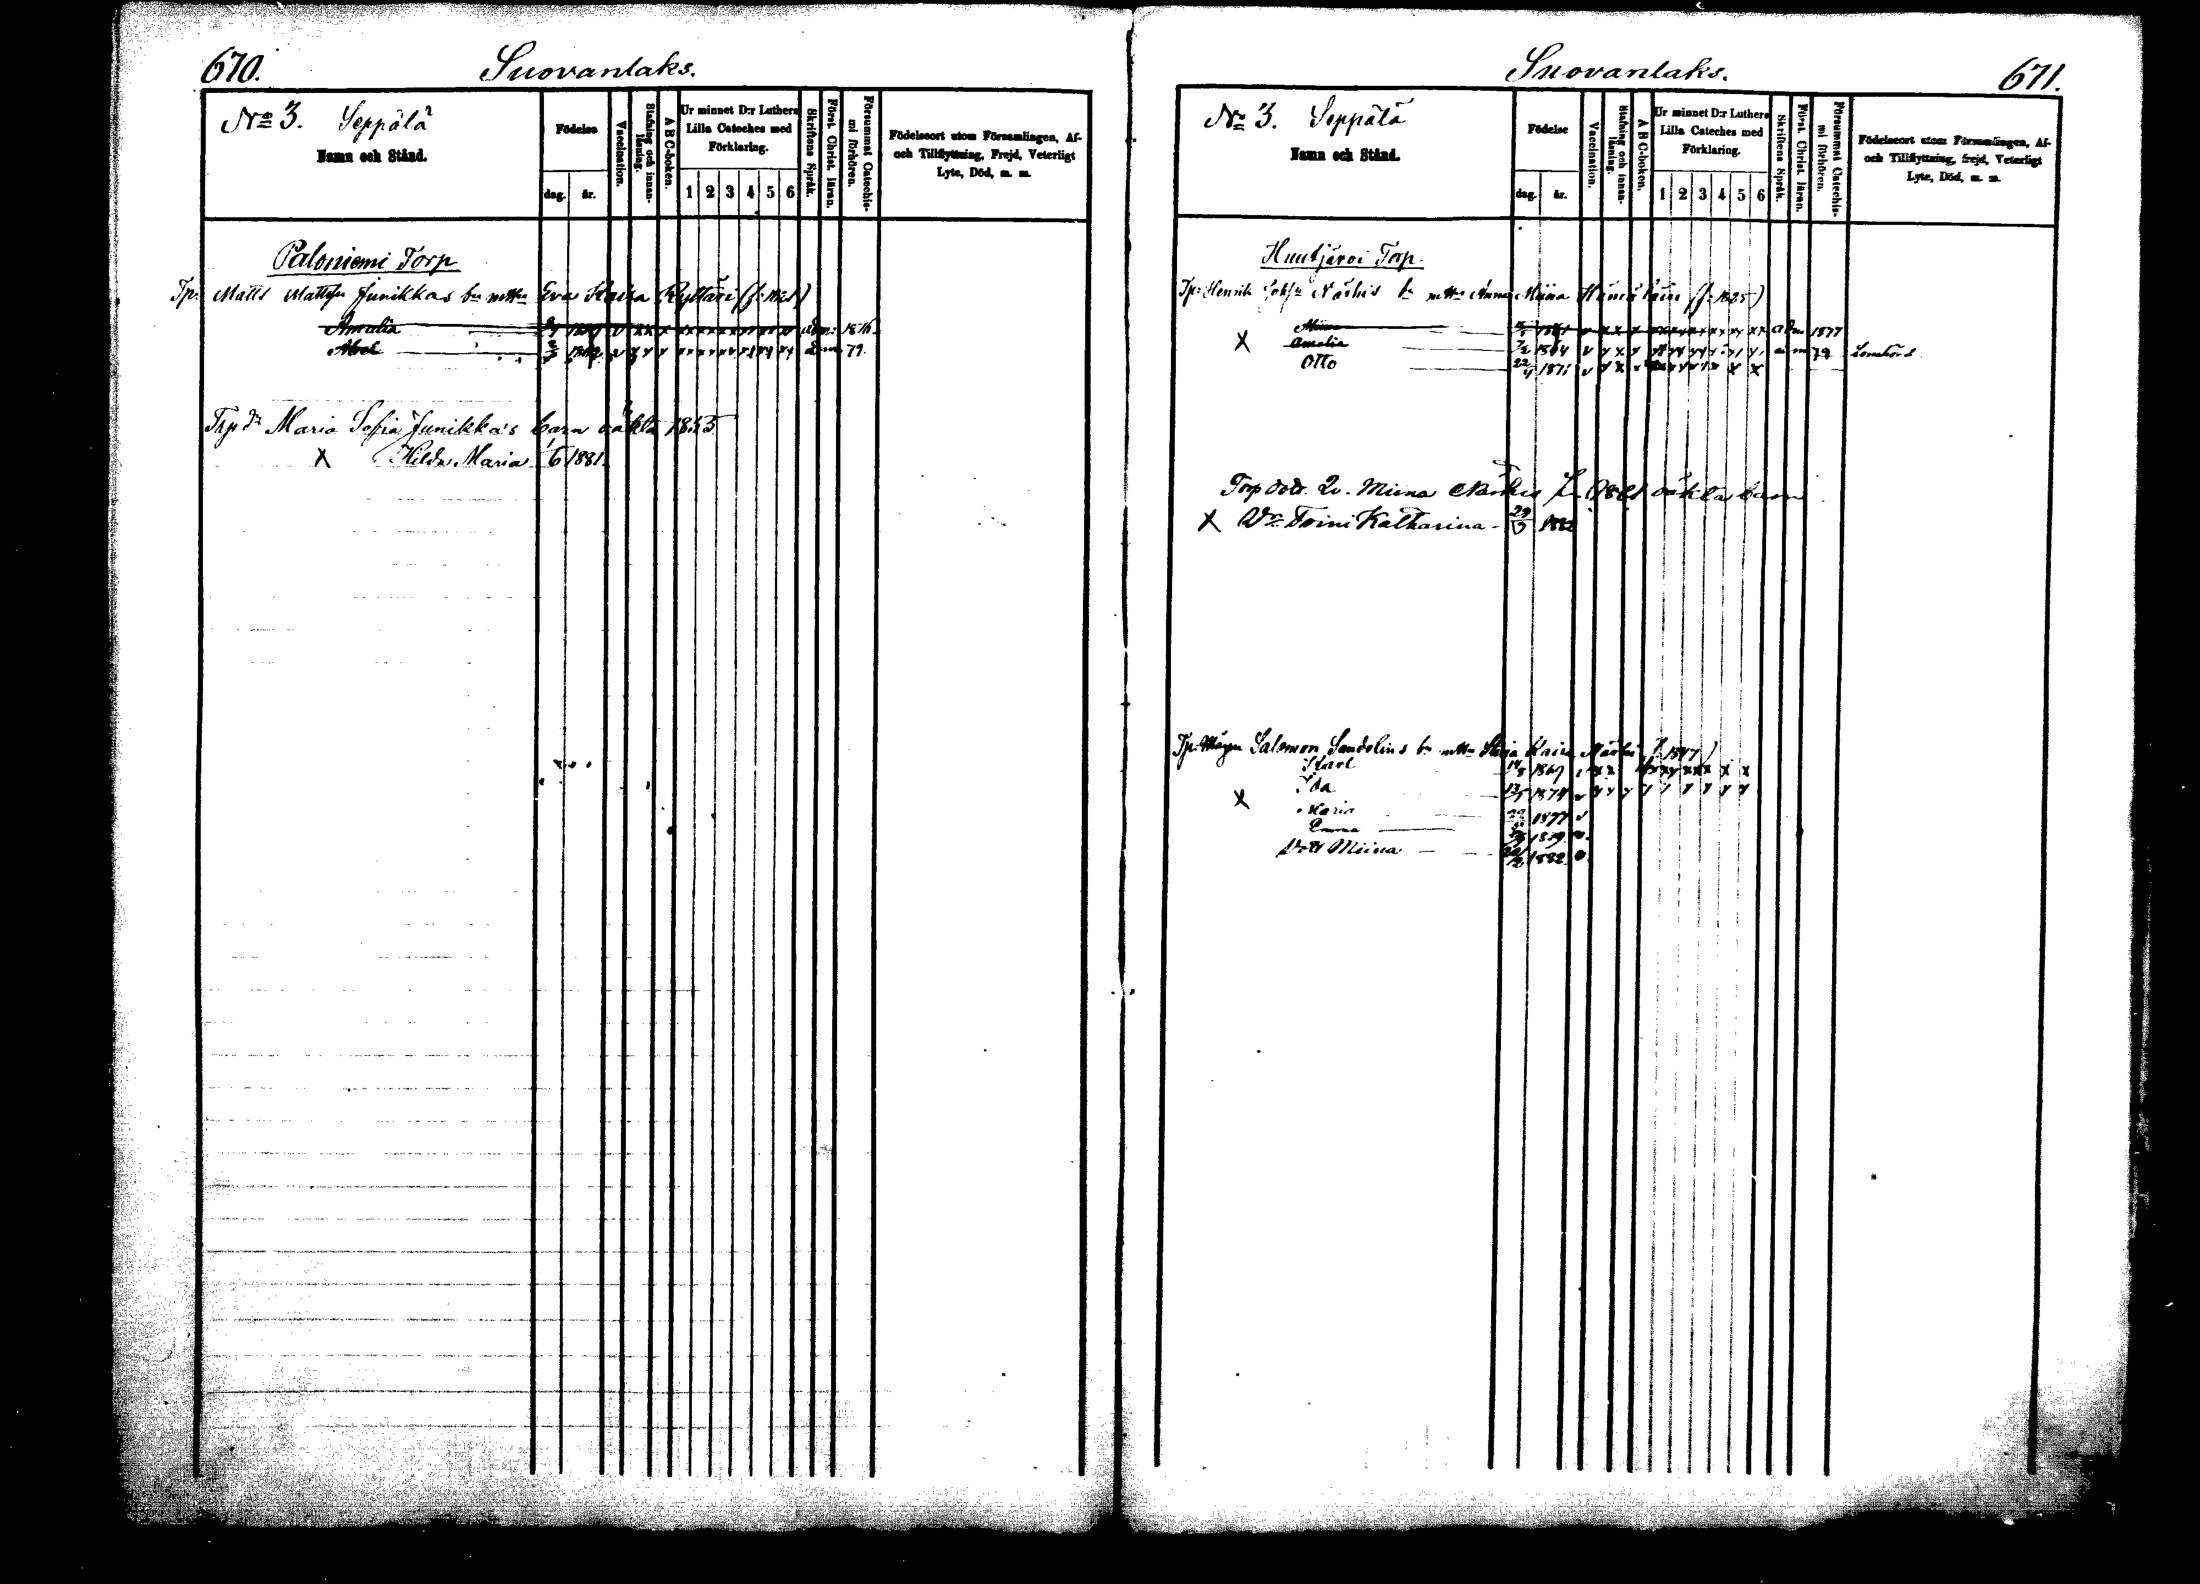 670. Suovanlaks.
No 3. Seppälä
Namn och Stånd.
Födelse
dag. år.
Vaccination.
Stafning och innan-läsning.
A B C-boken.
Ur minnet D:r Luthers
Lilla Cateches med
Förklaring.
1 2 3 4 5 6
Skriftens Språk.
Först. Christ. läran.
Försummat Catechis-mi förhören.
Födelseort utom Församlingen, Af-
och Tillflyttning, Frejd, Veterligt
Lyte, Död, m. m.
Paloniemi Torp
Tp. Matts Junikkas bn Eva Kaisa Ryttäri
Amalia 1876
Abel 79.
Trp dr Maria Sofia Junikka's barn oäkta 1853
X Hilda Maria 1/6 1881.
Suovanlaks. 671.
No 3. Seppälä
Namn och Stånd.
Födelse
dag. år.
Vaccination.
Stafning och innan-läsning.
A B C-boken.
Ur minnet D:r Luthers
Lilla Cateches med
Förklaring.
1 2 3 4 5 6
Skriftens Språk.
Först. Christ. läran.
Försummat Catechis-mi förhören.
Födelseort utom Församlingen, Af-
och Tillflyttning, frejd, Veterligt
Lyte, Död, m. m.
Huutjärvi Torp.
Tp. Henrik Närhis bn Anna Miina
Miina 1877
X Amalia 1864 79
Otto 22/4 1871
Miina oäkta barn
X Toini Katharina 29
Tp. Salomon Sandelins bn Kaisa 1847)
Karl 14/8 1869
X Ida 1874
Maria 1877
Emma
Miina 1882